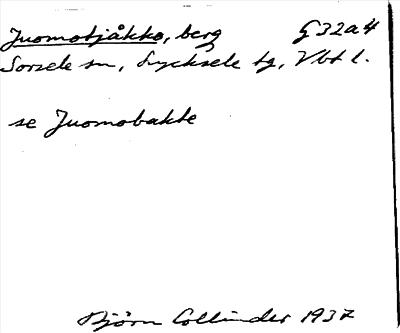 Juomotjåkko, berg G 32a4
Sorsele sn, Lycksele tg, Vbt l.
se Juomobakte
Björn Collinder 1937